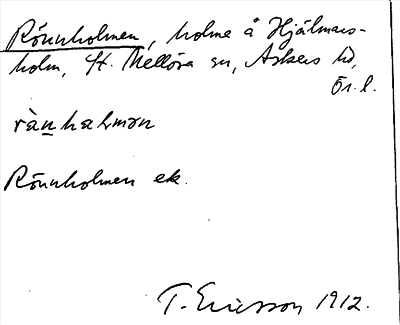 Rönnholmen, holme å Hjälmars-
holm, St. Mellösa sn, Askers hd,
Ör. l.
rànhalmən
Rönnholmen ek.
T. Ericsson 1912.